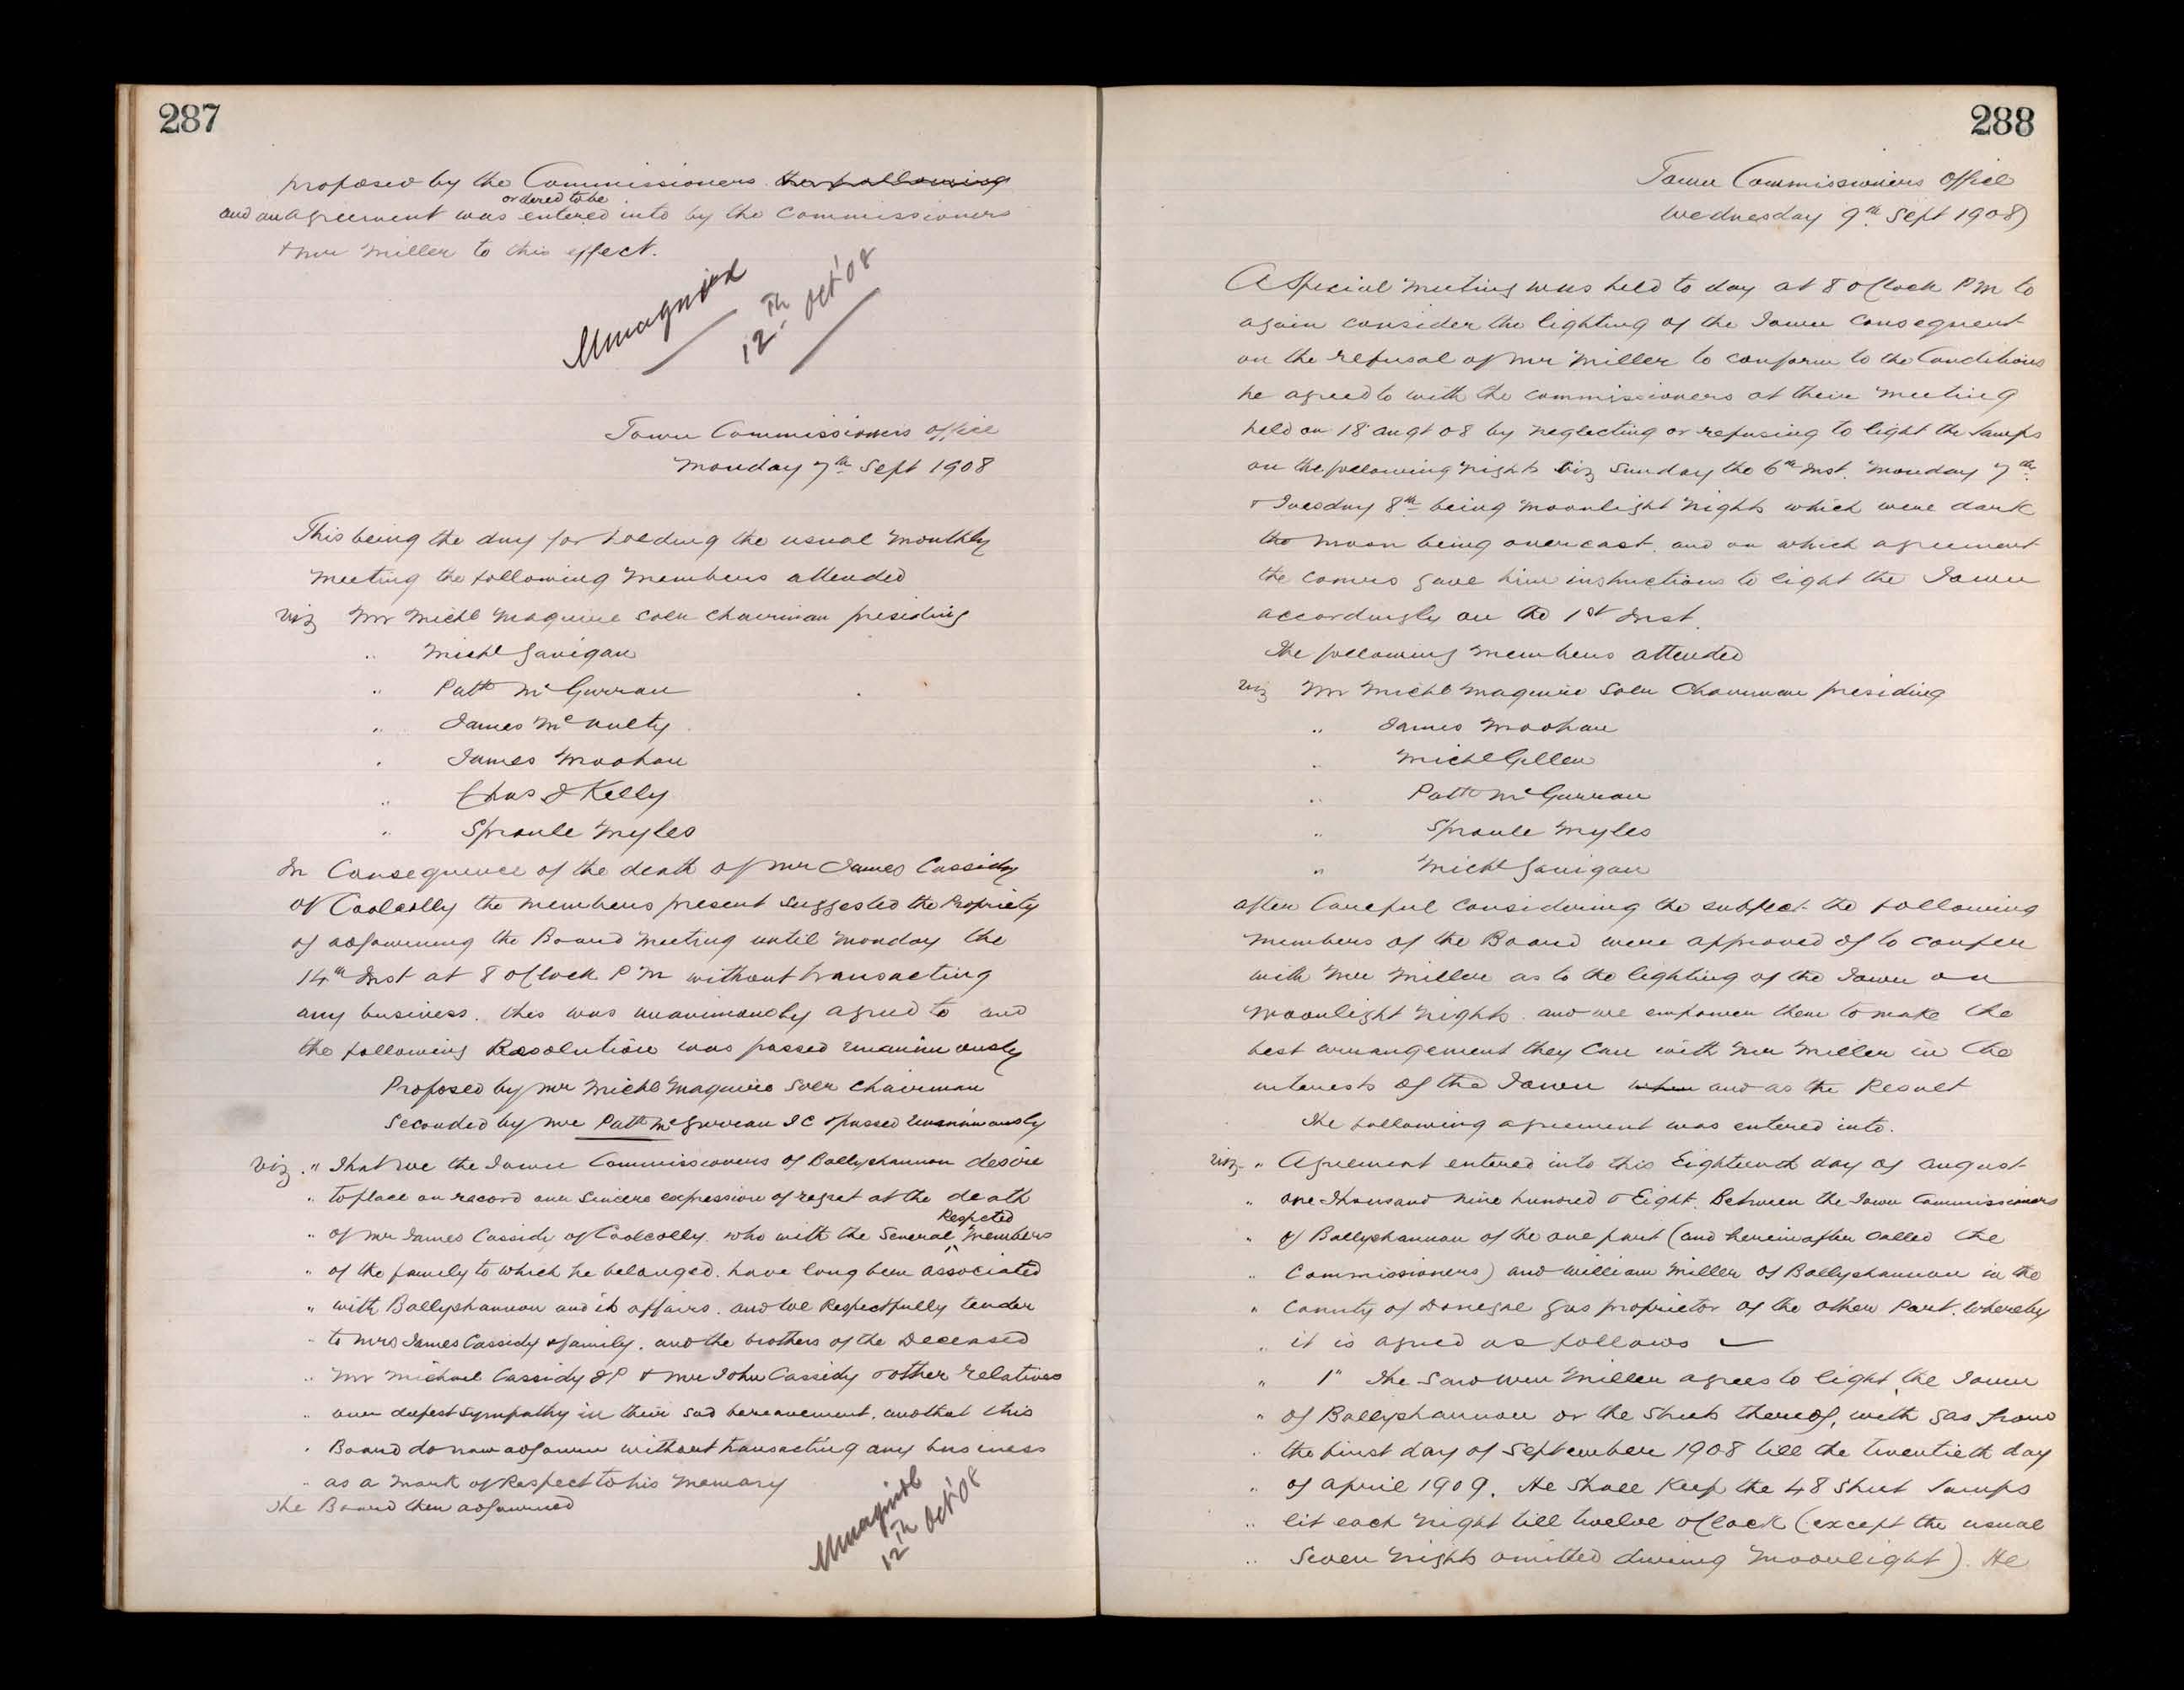 287
proposed by the Commissioners the following
ordered to be
and an agreement was entered into by the Commissioners
& Mr Miller to this effect.
MMaguire
12th Oct '08
Town Commissioners Office
Monday 7th Sept 1908
This being the day for holding the usual Monthly
Meeting the following Members attended
viz Mr Michl Maguire Solr Chairman presiding
" Michl Gavigan
" Patk McGurran
" James McAnulty
" James Moohan
" Chas J Kelly
" Sproule Myles
In Consequence of the death of Mr James Cassidy
of Coolcolly the members present suggested the Propriety
of adjourning the Board Meeting until Monday the
14th Inst at 8 o'Clock P M without transacting
any business. this was unanimously agreed to and
the following Resolution was passed unanimously
Proposed by Mr Michl Maguire Solr Chairman
Seconded by Mr Patk McGurran T C & passed unanimously
viz. " That we the Town Commissioners of Ballyshannon desire
" to place on record our sincere expression of regret at the death
Respected
" of Mr James Cassidy of Coolcolly. who with the Several Members
" of the family to which he belonged. have long been associated
" with Ballyshannon and its affairs. and We Respectfully tender
" to Mrs James Cassidy & family. and the brothers of the Deceased
" Mr Michael Cassidy JP & Mr John Cassidy & other relatives
" our deepest sympathy in their sad bereavement. and that this
" Board do now adjourn without transacting any business
" as a Mark of Respect to his Memory
The Board then adjourned
MMaguire
12th Oct '08
288
Town Commissioners Office
Wednesday 9th Sept 1908
A Special Meeting was held to day at 8 o'Clock P M to
again consider the lighting of the Town Consequent
on the refusal of Mr Miller to conform to the Conditions
he agreed to with the Commissioners at their Meeting
held on 18 Augt 08 by neglecting or refusing to light the Lamps
on the following nights viz Sunday the 6th Inst. Monday 7th
& Tuesday 8th being Moonlight Nights which were dark
the Moon being overcast. and on which agreement
the Comrs gave him instructions to light the Town
accordingly on the 1st Inst.
The following Members attended
viz Mr Michl Maguire Solr Chairman presiding
" James Moohan
" Michl Gillen
" Patk McGurran
" Sproule Myles
" Michl Gavigan
after Careful Considering the subject the following
Members of the Board were approved of to confer
with Mr Miller as to the lighting of the Town on
Moonlight Nights. and we empower them to make the
best arrangement they Can with Mr Miller in the
interests of the Town when and as the Result
The following agreement was entered into.
viz " Agreement entered into this Eighteenth day of August
" one Thousand Nine hundred & Eight. Between the Town Commissioners
" of Ballyshannon of the one part (and hereinafter Called the
" Commissioners) and William Miller of Ballyshannon in the
" County of Donegal gas proprietor of the other Part. Whereby
" it is agreed as follows
" 1" The Said Wm Miller agrees to light the Town
" of Ballyshannon or the Streets thereof, with gas from
" the first day of September 1908 till the twentieth day
" of April 1909. He Shall Keep the 48 Street Lamps
" lit each Night till twelve o'Clock (except the usual
" Seven Nights omitted during Moonlight). He